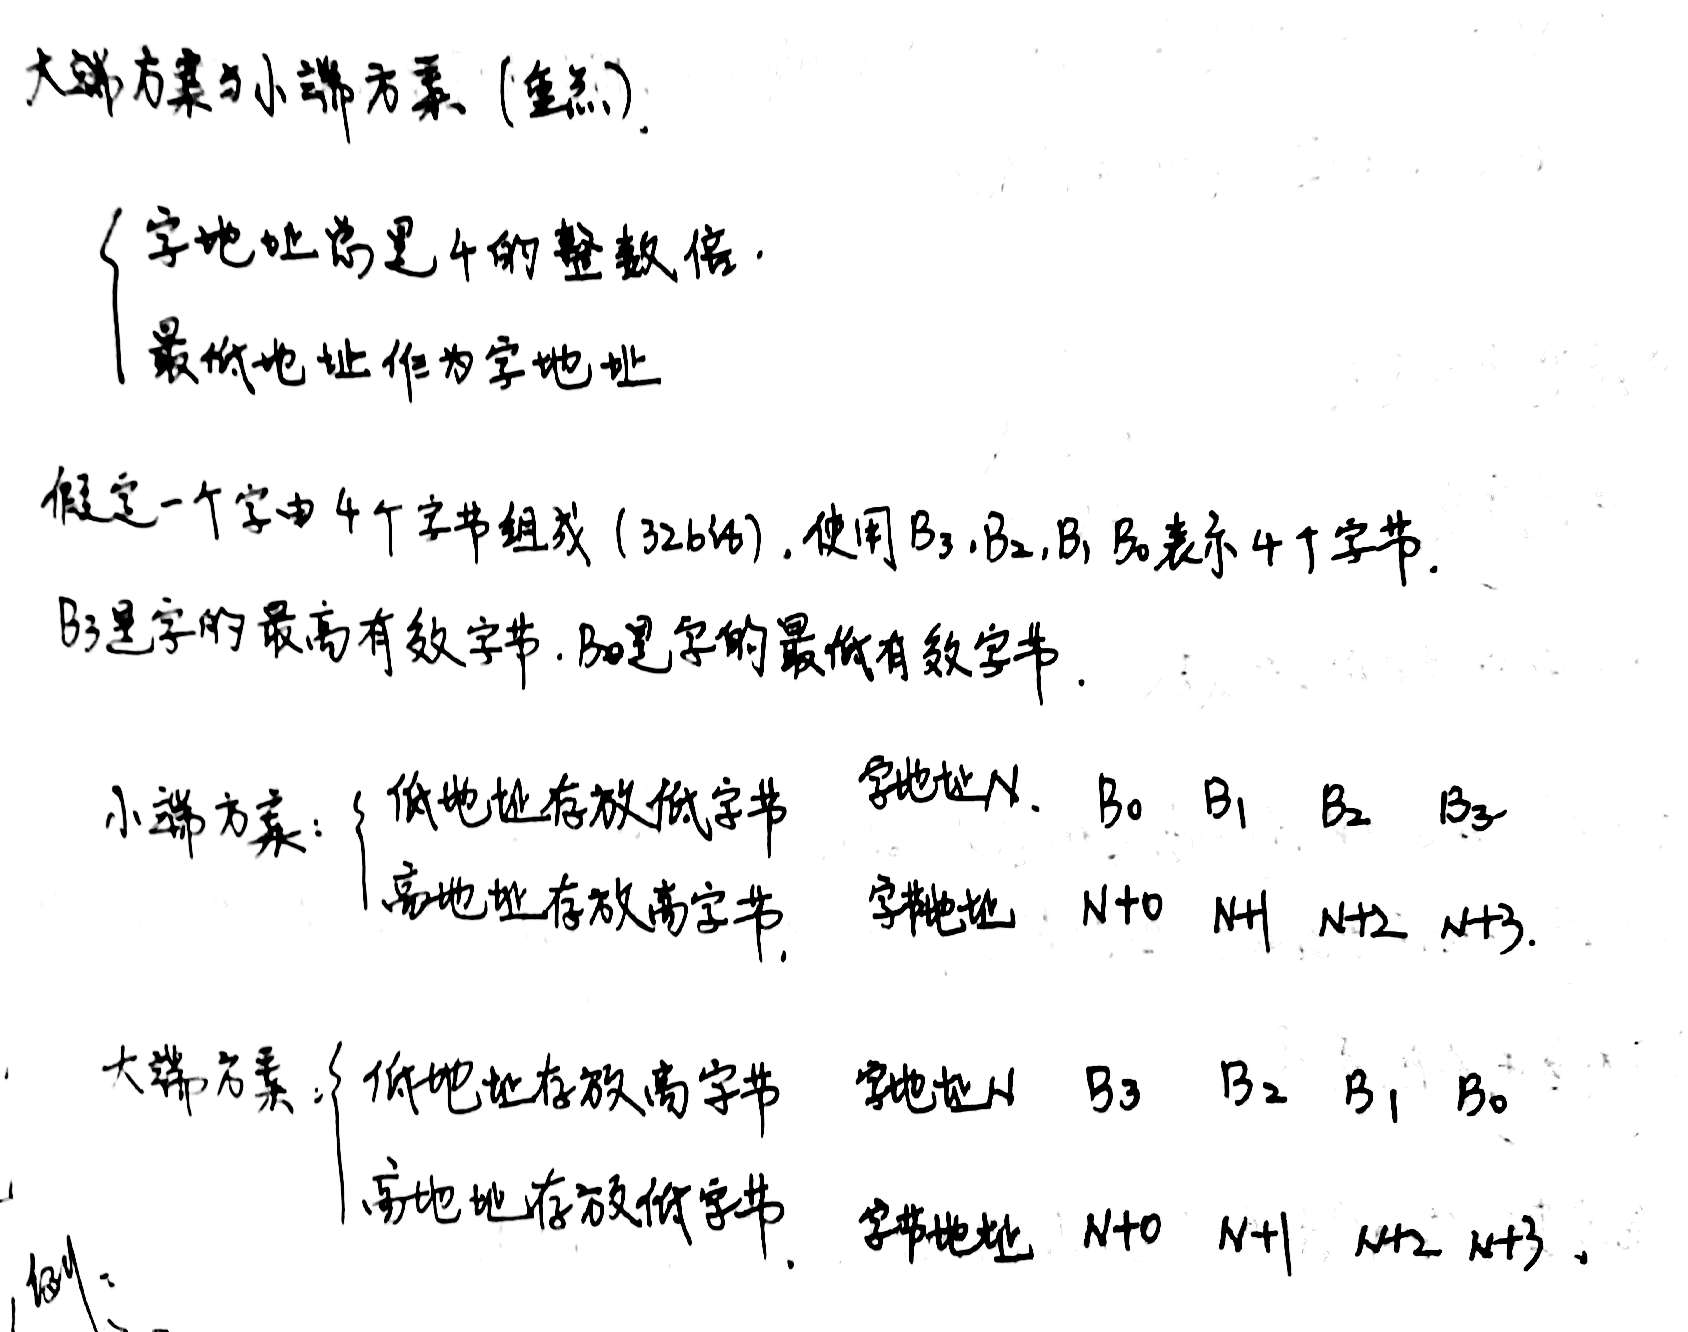 大端方案与小端方案 (重点).
字地址总是4的整数倍.
最低地址作为字地址
假定一个字由4个字节组成 (32bit). 使用B₃,B₂,B₁ B₀表示4个字节.
B₃是字的最高有效字节. B₀是字的最低有效字节.
小端方案: { 低地址存放低字节 字地址N. B₀ B₁ B₂ B₃
高地址存放高字节. 字节地址 N+0 N+1 N+2 N+3.
大端方案: { 低地址存放高字节 字地址N B₃ B₂ B₁ B₀
高地址存放低字节. 字节地址 N+0 N+1 N+2 N+3.
例: